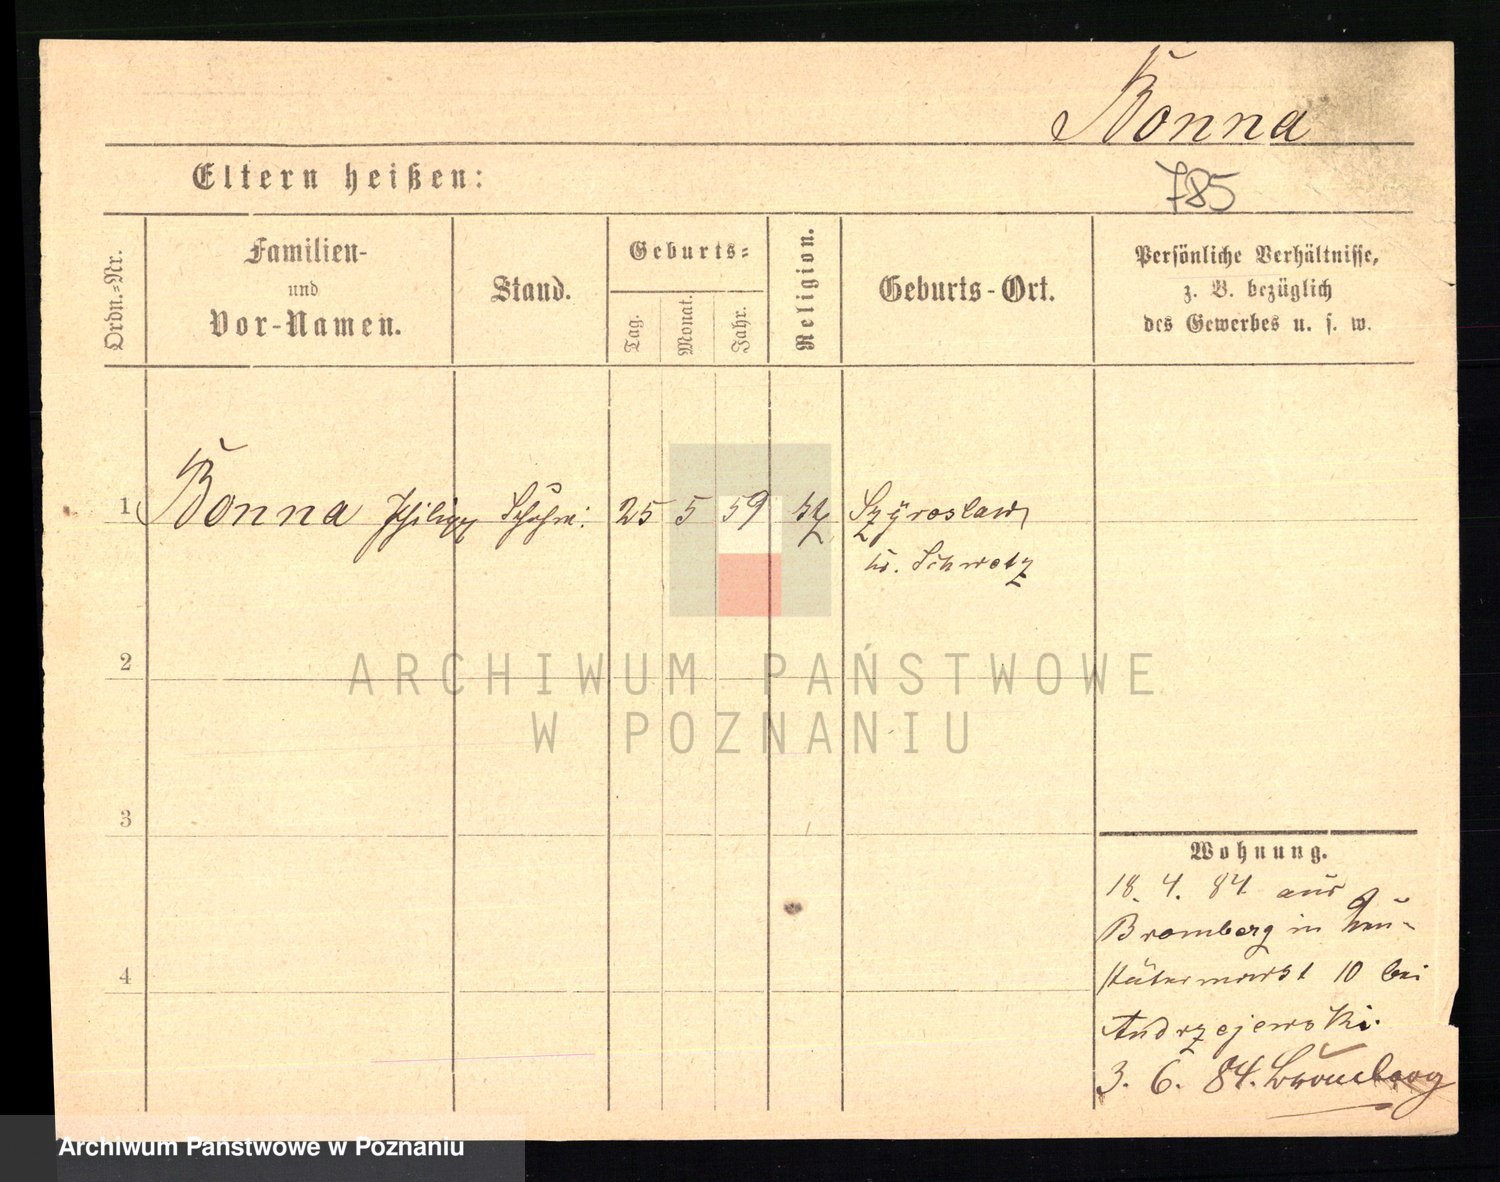 Bonna
785
Eltern heißen:
Ordn.-Nr.
Familien-
und
Vor-Namen.
Stand.
Geburts-
Tag.
Monat.
Jahr.
Religion.
Geburts-Ort.
Persönliche Verhältnisse,
z. B. bezüglich
des Gewerbes u. s. w.
1 Bonna Philipp 25 5 59
Schwetz
2
3
4
Wohnung.
18. 4. 84 aus
Bromberg in Neu-
städtermarkt 10 bei
Andrzejewski.
3. 6. 84. Bromberg
ARCHIWUM PAŃSTWOWE
W POZNANIU
Archiwum Państwowe w Poznaniu